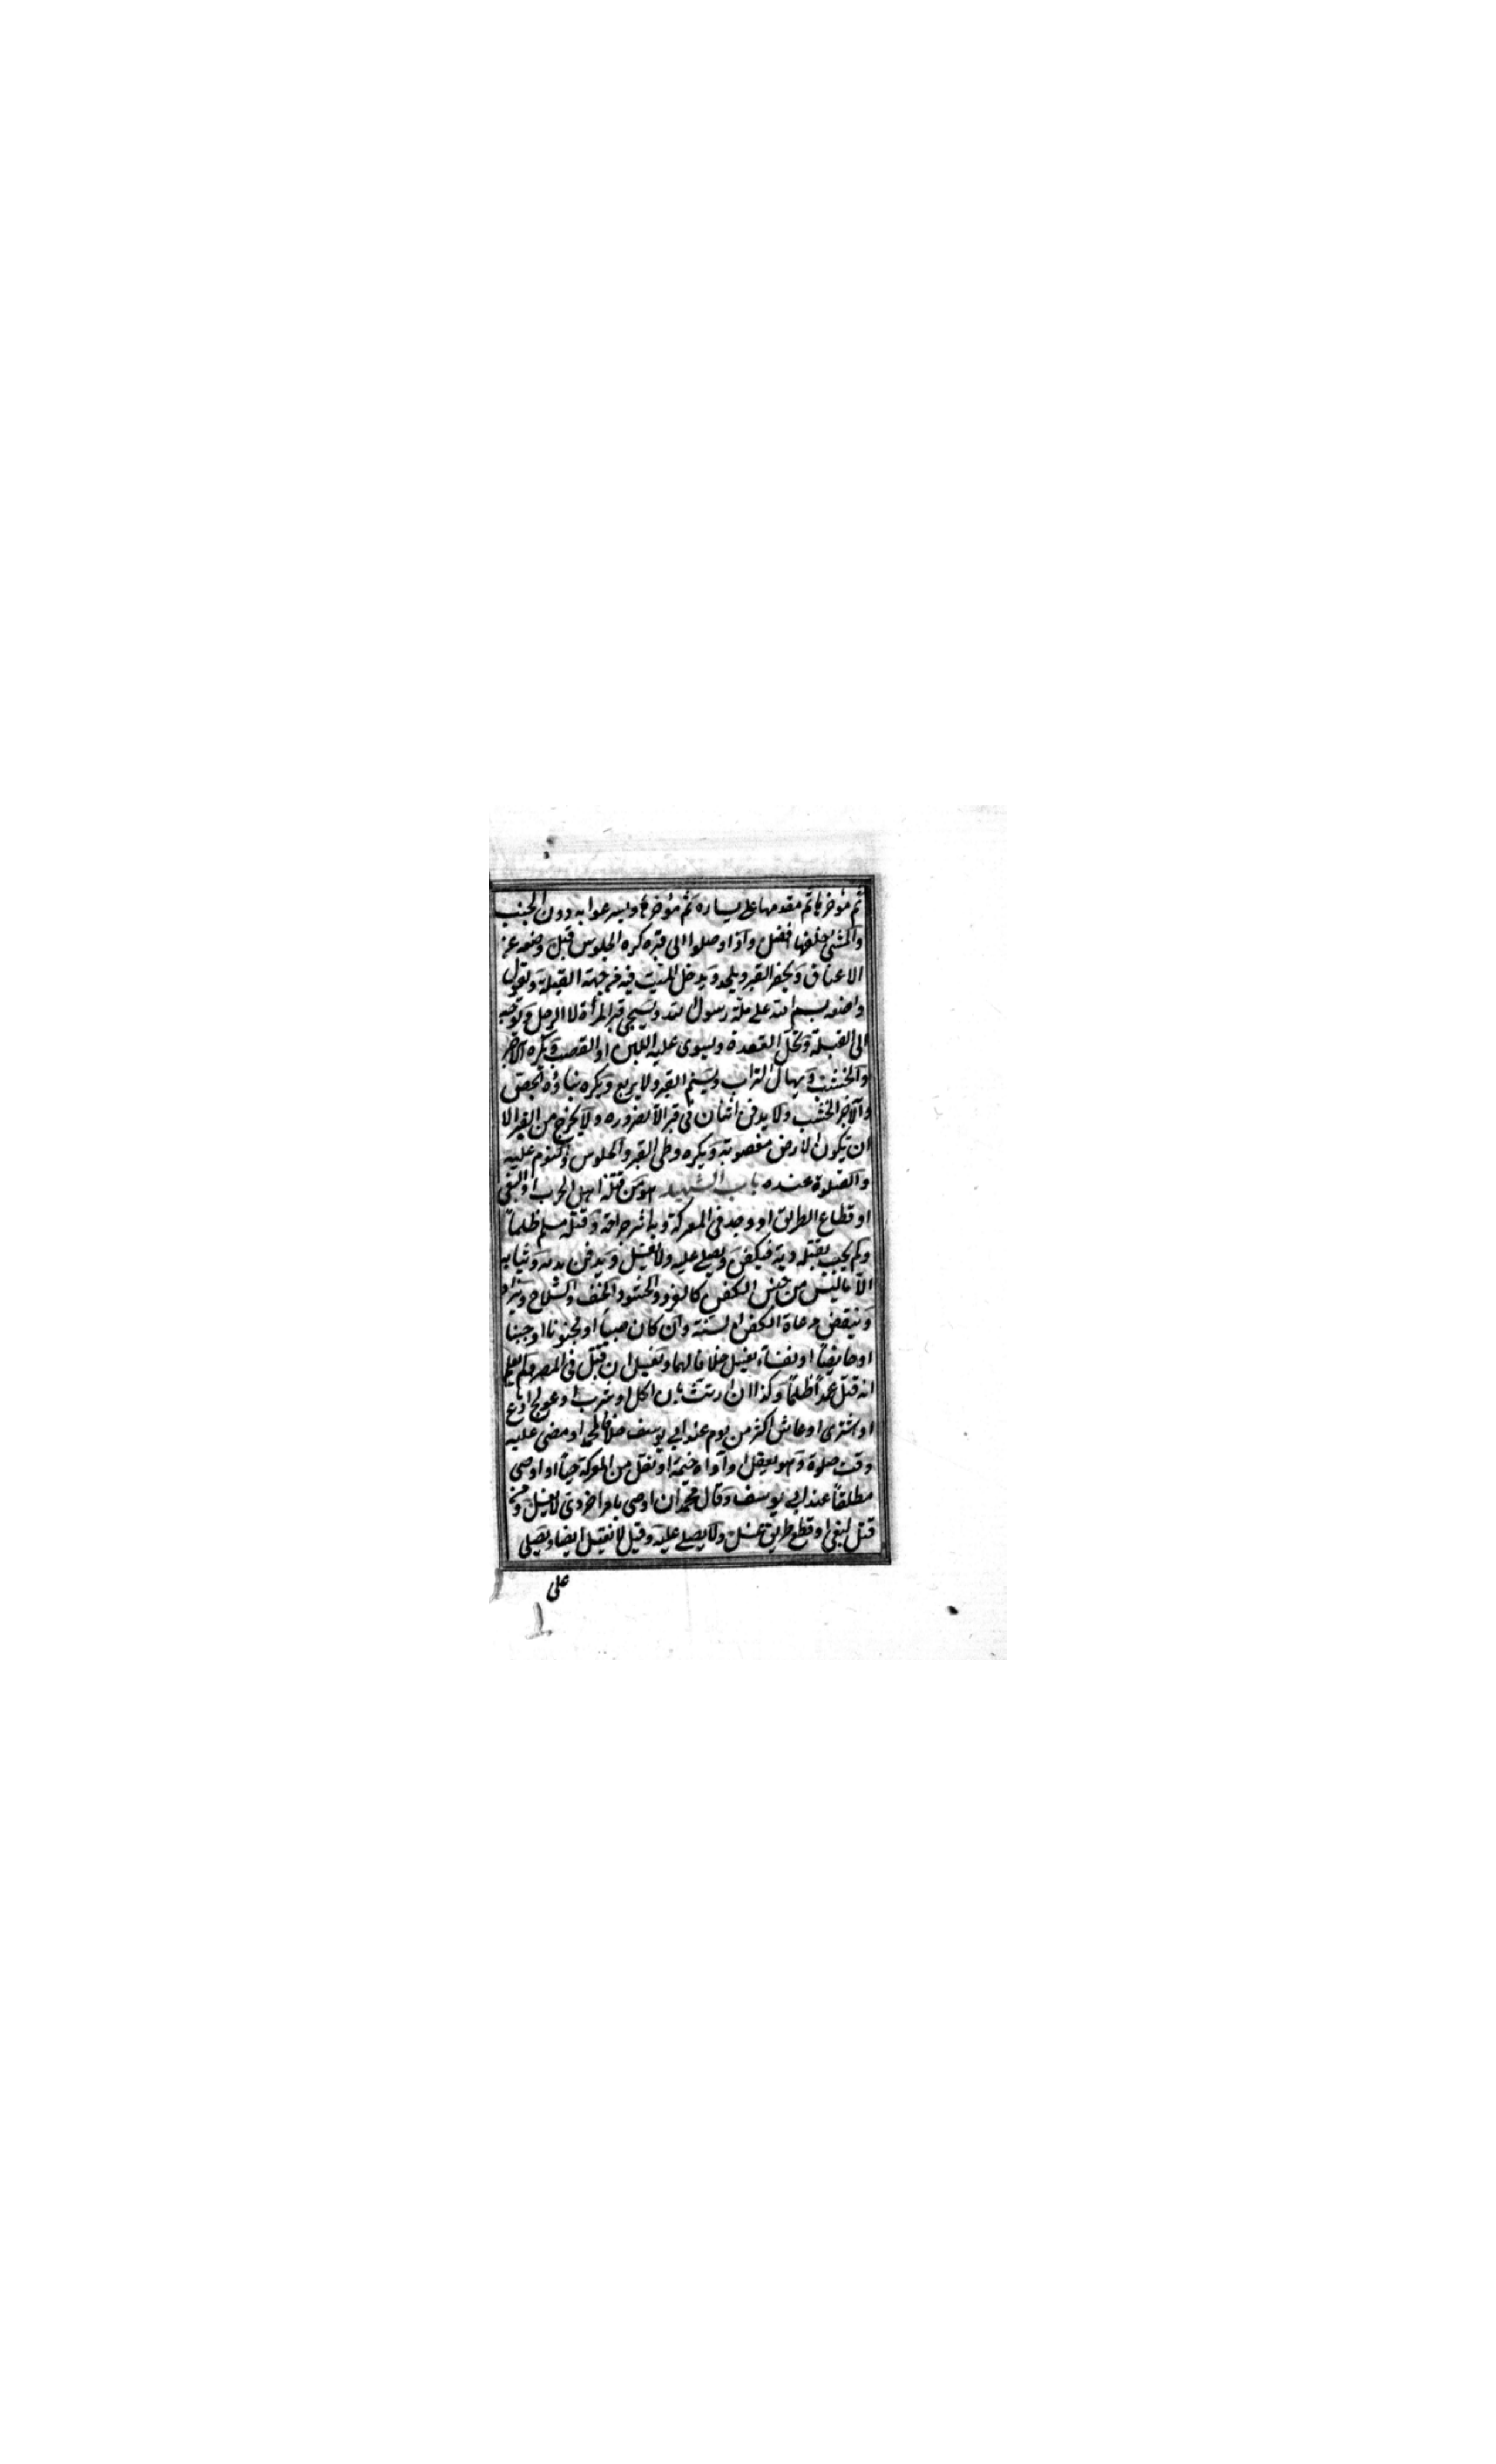 ثم مؤخرها ثم مقدمها على يساره ثم مؤخرها ويسرعوا به دون الخبب
والمشي خلفها افضل واذا وصلوا الى قبره كره الجلوس قبل وضعه عن
الاعناق ويحفر القبر ويلحد ويدخل الميت فيه من جهة القبلة ويقول
واضعه بسم الله على ملة رسول الله ويسجى قبر المرأة لا الرجل ويوجه
الى القبلة وتحل العقدة ويسوى عليه اللبن او القصب ويكره الآجر
والخشب ويهال التراب ويسنم القبر ولا يربع ويكره بناؤه بالجص
والآجر والخشب ولا يدفن اثنان في قبر الا لضروره ولا يخرج من القبر الا
ان يكون الارض مغصوبة ويكره وطى القبر والجلوس والنوم عليه
والصلوة عنده باب الشهيد هو من قتله اهل الحرب او البغي
او قطاع الطريق او وجد في المعركة وبه اثر جراحة او قتله مسلم ظلماً
ولم يجب بقتله دية فيكفن ويصلى عليه ولا يغسل ويدفن بدمه وثيابه
الا ما ليس من جنس الكفن كالفرو والحشو والخف والسلاح ويزاد
وينقص مرعاة لكفن السنة وان كان صبياً او مجنونا او جنبا
او حايضاً او نفساء يغسل خلافا لهما ويغسل ان قتل في المصر ولم يعلم
انه قتل عمداً ظلماً وكذا ان ارتث بان اكل او شرب او عولج او باع
او اشترى او عاش اكثر من يوم عند ابي يوسف خلافا لمحمد او مضى عليه
وقت صلوة وهو يعقل او آواه خيمة او نقل من المعركة حياً او اوصى
مطلقاً عند ابي يوسف وقال محمد ان اوصى بامر اخروي لا يغسل ومن
قتل لبغي او قطع طريق غسل ولا يصلى عليه وقيل لا يغسل ايضا ويصلى
على